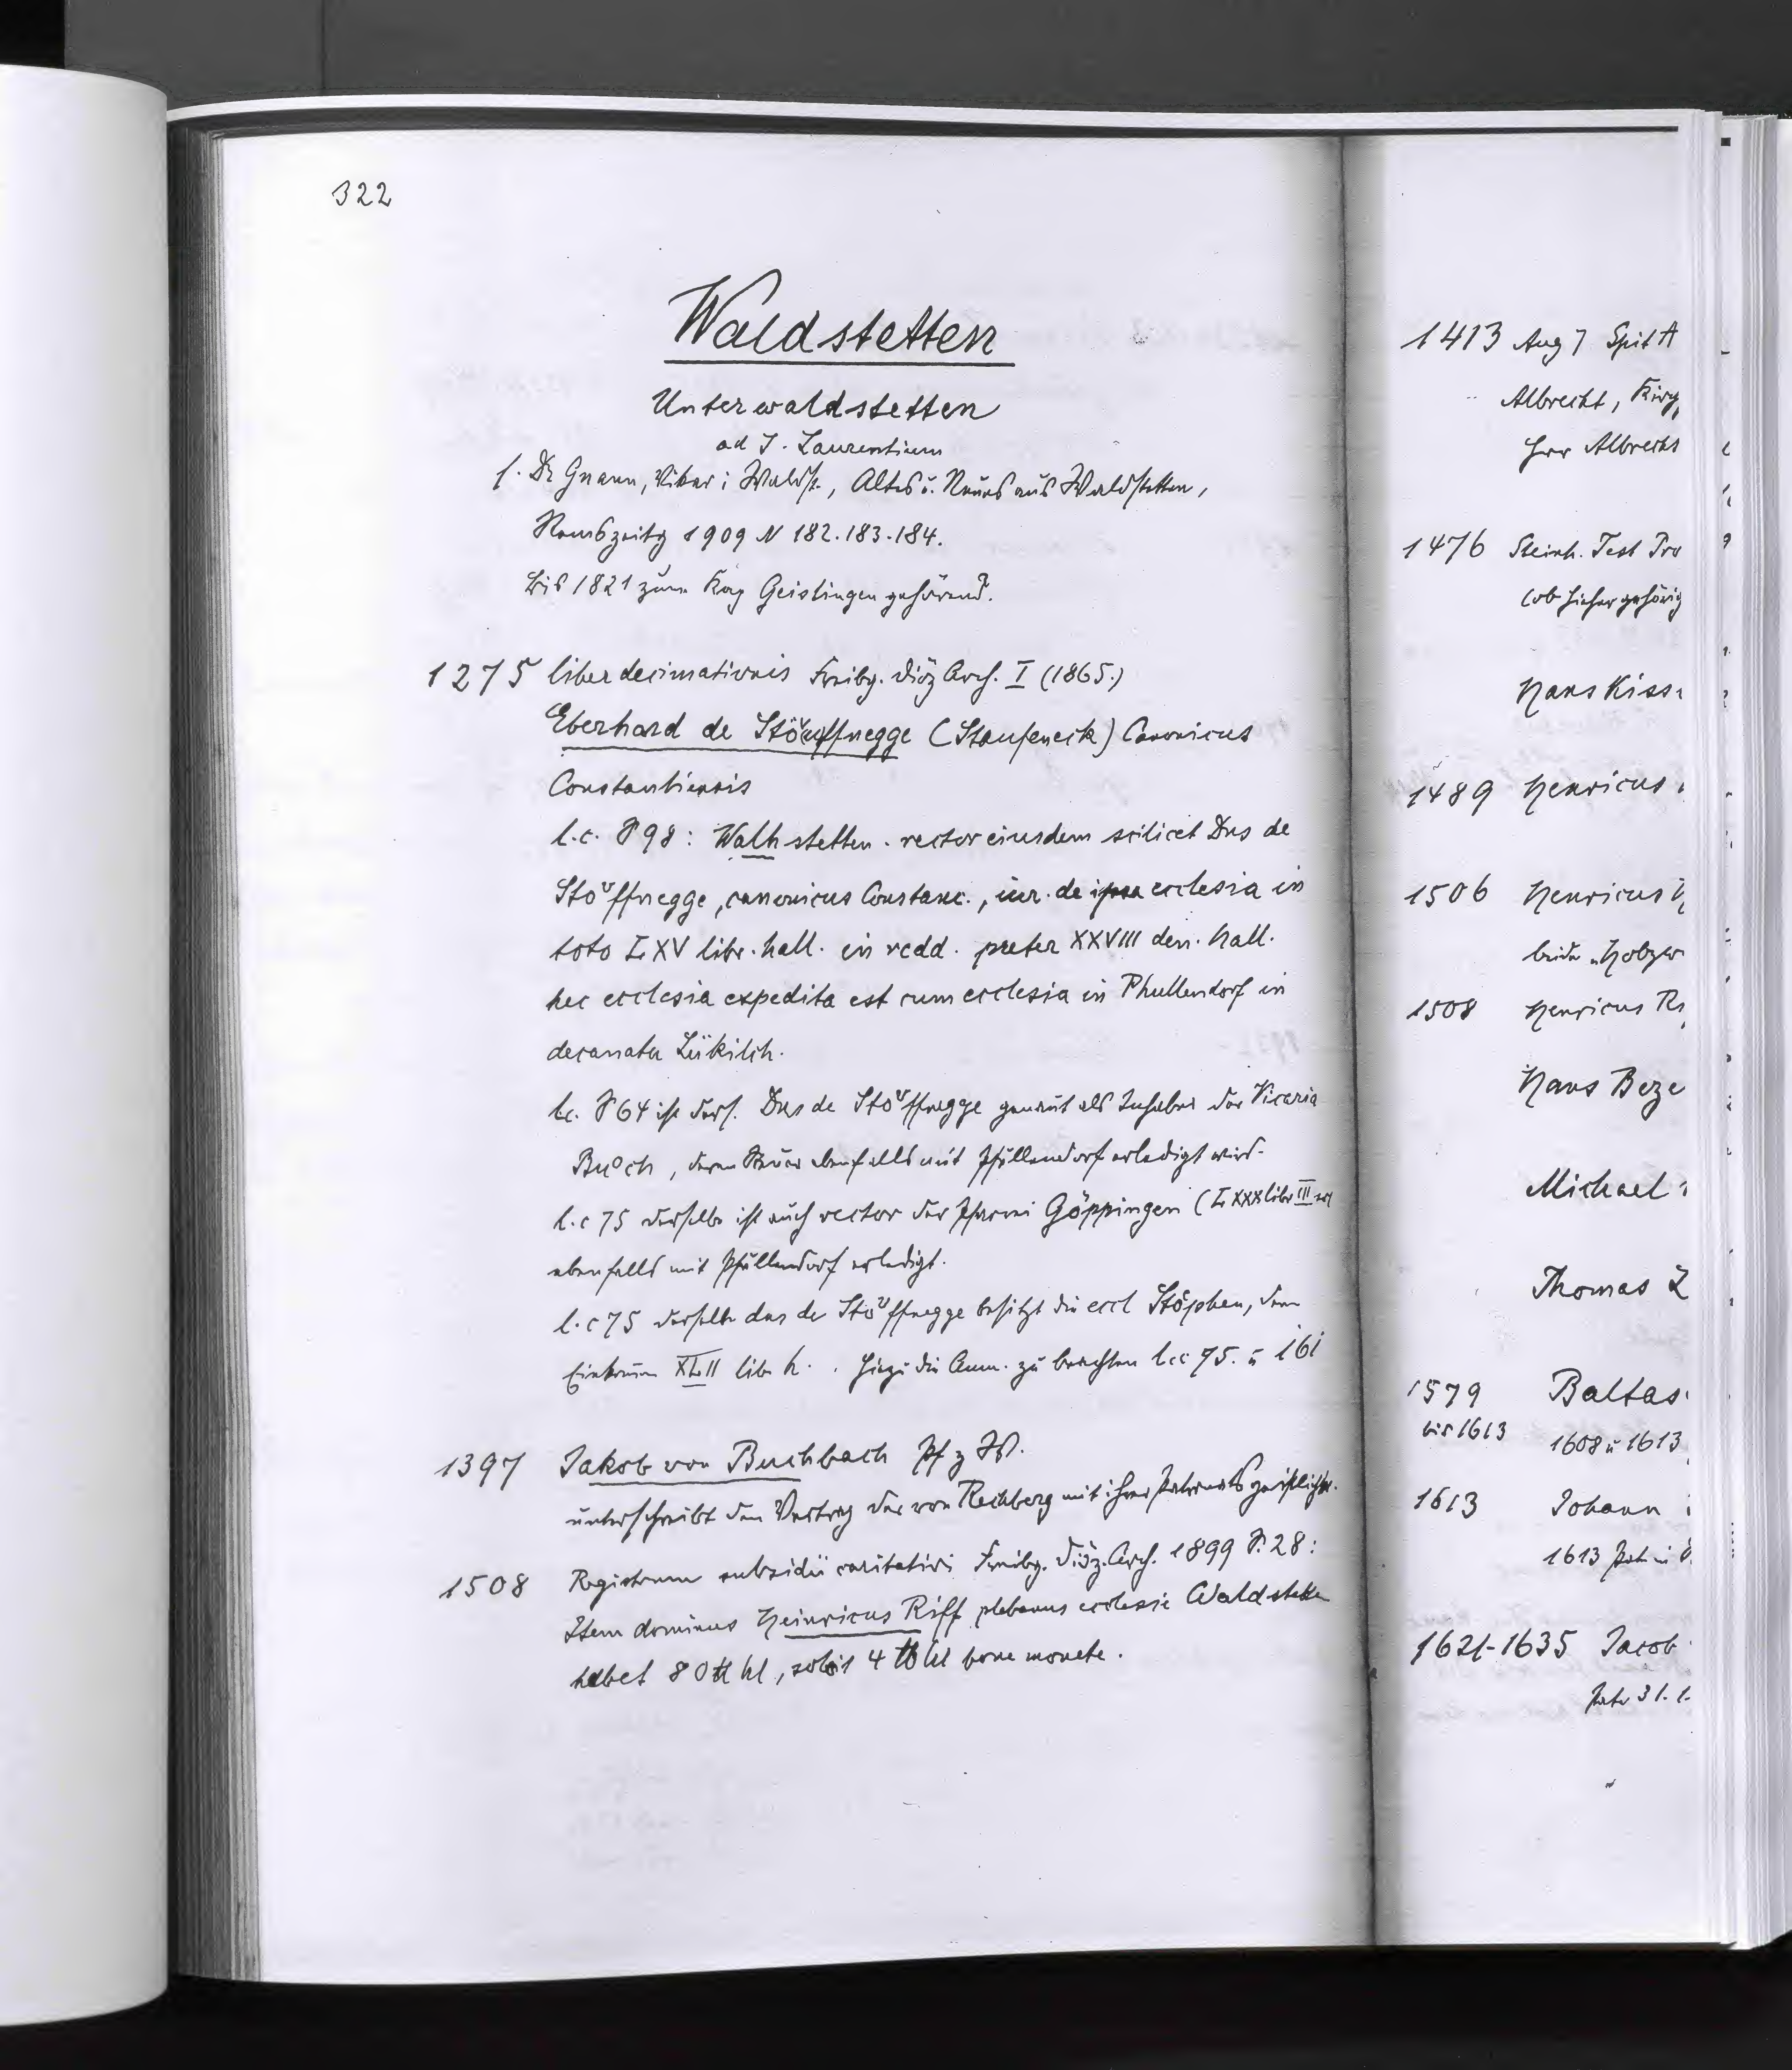 322
Waldstetten
Unterwaldstetten
ad S. Laurentium
s. Dr Gnann, Vikar i Waldst., Altes u. Neues aus Waldstetten,
Remszeitg 1909 N 182.183.184.
Bis 1821 zum Kap Geislingen gehörend.
1275 liber decimationis Freibg. Diöz Arch. I (1865.)
Eberhard de Stöuffnegge (Staufeneck) Canonicus
Constantiensis
l.c. S 98: Walhstetten. rector eiusdem scilicet Dns de
Stoᵛffnegge, canonicus Constanc., iur. de ipsa ecclesia in
toto LXV libr. hall. in redd. preter XXVIII den. hall.
hec ecclesia expedita est cum ecclesia in Phullendorf in
decanatu Lükilch.
lc. S 64 ist ders. Dns de Stoᵛffnegge genannt als Inhaber der Vicaria
Buͦch, deren Steuer ebenfalls mit Pfullendorf erledigt wird.
l.c 75 derselbe ist auch rector der Pfarrei Göppingen (LXXX libr III
ebenfalls mit Pfullendorf erledigt.
l.c 75 derselbe dns de Stoᵛffnegge besitzt die eccl Stöphen, dem
Einkomm XLII libr h. . Hiezu die Anm. zu beachten l.c 75. u 161
1397 Jakob von Buchbach Pf z W.
unterschreibt den Vertrag der von Rechberg mit ihren Patronatsgeistlichen.
1508 Registrum subsidii caritativi Freibg. Diöz. Arch. 1899 S. 28:
Item dominus Heinricus Riff plebanus ecclesie Waldstetten
habet 80 ℔ hl, solvit 4 ℔ hl bone monete.
1413 Aug 7 Spit A
Albrecht, Kirch
Herr Albrecht
1476 Steinh. Test Pro
(ob hieher gehörig
Hans Kiss
1489 Henricus
1506 Henricus
beide
1508 Henricus R
Hans Beze
Michael
Thomas Z
1579 Baltas
bis 1613
1608 u 1613
1613 Johann
1613 Pat in
1621-1635 Jacob
Pate 31.1.